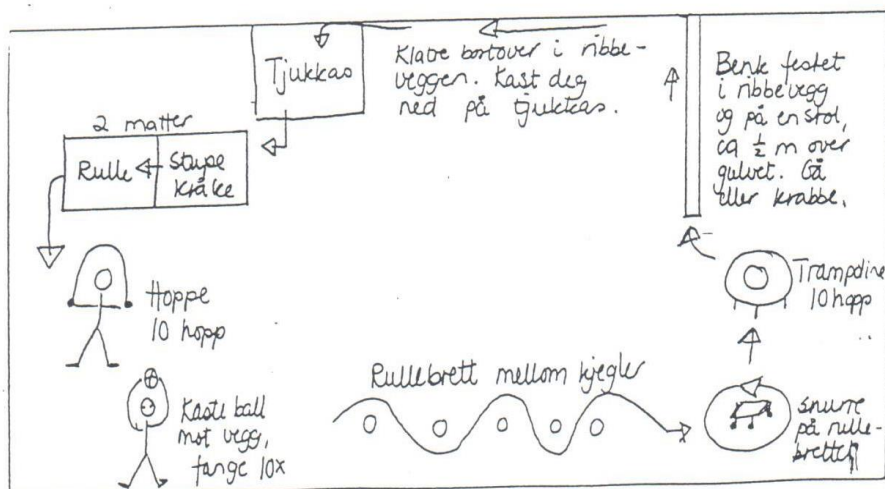 Tjukkas
Klatre bortover i ribbe-
veggen. Kast deg
ned på tjukkas.
Benk festet
i ribbevegg
og på en stol,
ca ½ m over
gulvet. Gå
eller krabbe.
2 matter
Rulle
Stupe
kråke
Hoppe
10 hopp
Trampoline
10 hopp
Rullebrett mellom kjegler
Kaste ball
mot vegg,
fange 10x
snurre
på rulle-
brettet